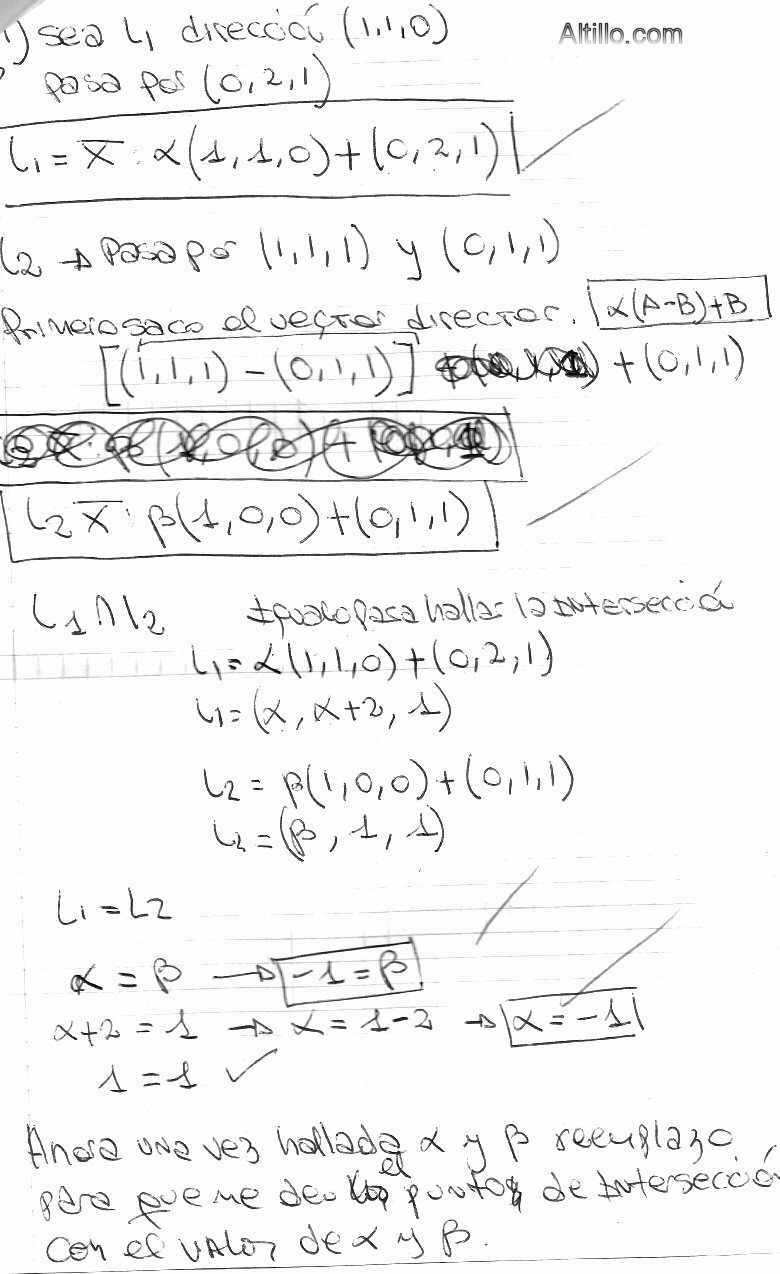 1) sea L₁ dirección (1,1,0)
Altillo.com
pasa por (0,2,1)
L₁ = X̄: α(1,1,0)+(0,2,1)
L₂ → Pasa por (1,1,1) y (0,1,1)
Primero saco el vector director. α(A-B)+B
[(1,1,1) - (0,1,1)] + (0,1,1)
L₂ X̄: β(1,0,0)+(0,1,1)
L₁ ∩ L₂ Igualo para hallar la Intersección
L₁ = α(1,1,0)+(0,2,1)
L₁ = (α, α+2, 1)
L₂ = β(1,0,0)+(0,1,1)
L₂ = (β, 1, 1)
L₁ = L2
α = β → -1 = β
α+2 = 1 → α = 1-2 → α = -1
1 = 1 ✓
Ahora una vez hallada α y β reemplazo
para que me de el punto de Intersección
con el valor de α y β.